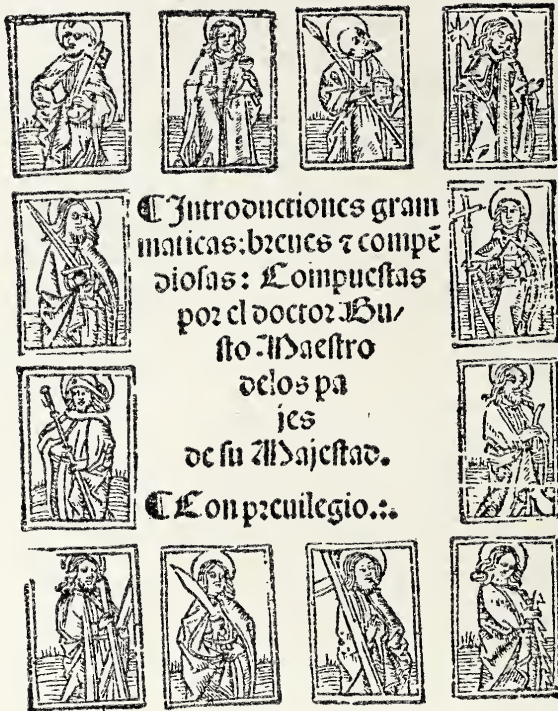 ¶ Introductiones gram
maticas: breues ⁊ compē
diosas: Compuestas
por el doctor Bu/
sto Maestro
delos pa
jes
de su Majestad.
¶ Con preuilegio.:.